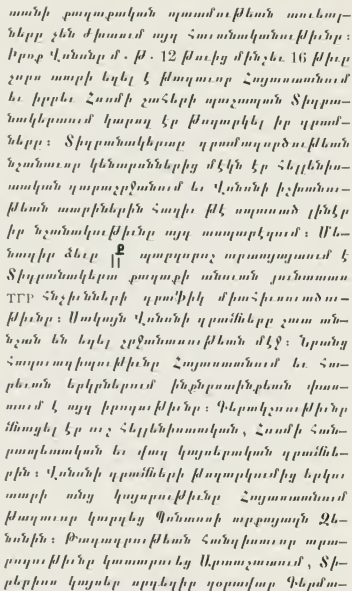 տանի քաղաքական պատմութեան տուեալ-
ները չեն ժխտում այդ հաւանականութիւնը։
Իրօք Վոնոնը մ. թ. 12 թուից մինչեւ 16 թիւը
չորս տարի եղել է թագաւոր Հայաստանում
եւ իբրեւ Հռոմի շահերի պաշտպան Տիգրա-
նակերտում կարող էր թողարկել իր դրամ-
ները։ Տիգրանակերտը դրամագործութեան
նշանաւոր կենտրոններից մէկն էր հելլենիս-
տական դարաշրջանում եւ Վոնոնի իշխանու-
թեան տարիներին հազիւ թէ սպառած լինէր
իր նշանակութիւնը այդ ասպարէզում։ Մե-
նագիր ձեւը պարզորոշ արտայայտում է
Տիգրանակերտ քաղաքի անուան յունատառ
ΤΓΡ հնչիւնների գրաֆիկ միահիւսուածու-
թիւնը։ Սակայն Վոնոնի դրամները շատ ան-
նշան են եղել շրջանառութեան մէջ։ Նրանց
հազուագիւտութիւնը Հայաստանում եւ հա-
րեւան երկրներում ինքնըստինքեան փաս-
տում է այդ իրողութիւնը։ Գերակշռութիւնը
մնացել էր առ հելլենիստական, Հռոմի հան-
րապետական եւ վաղ կայսերական դրամնե-
րին։ Վոնոնի դրամների թողարկումից երկու
տարի անց կայսրութիւնը Հայաստանում
թագաւոր կարգեց Պոնտոսի արքայազն Զե-
նոնին։ Թագադրութեան հանդիսաւոր արա-
րողութիւնը կատարուեց Արտաշատում, Տի-
բերիոս կայսեր որդեգիր զօրավար Գերմա-